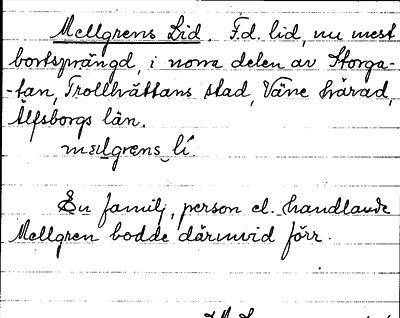 Mellgrens Lid. F.d. lid, nu mest
bortsprängd, i norra delen av Storga-
-tan, Trollhättans stad, Väne härad,
Älfsborgs län.
mælgrens li.
En familj, person el. handlande
Mellgren bodde därinvid förr.